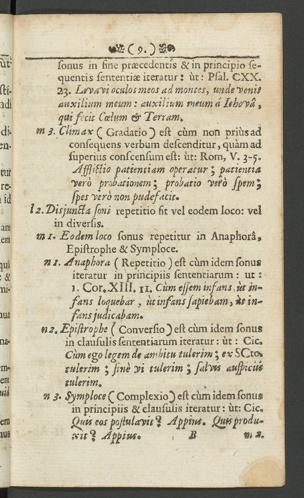 ( 9. )
sonus in fine præcedentis & in principio se-
quentis sententiæ iteratur: ùt: Psal. CXX.
23. Levavi oculos meos ad montes, unde venit
auxilium meum: auxilium meum á Iehovâ,
qui fecit Cœlum & Terram.
m 3. Climax (Gradatio) est cùm non priùs ad
consequens verbum descenditur, quàm ad
superius conscensum est: ùt: Rom, V. 3-5.
Afflictio patientiam operatur; patientia
verò probationem; probatio verò spem;
spes verò non pudefacit.
l 2. Disjuncta soni repetitio fit vel eodem loco: vel
in diversis.
m 1. Eodem loco sonus repetitur in Anaphorâ,
Epistrophe & Symploce.
n 1. Anaphora (Repetitio) est cùm idem sonus
iteratur in principiis sententiarum: ut:
1. Cor. XIII, 11. Cùm essem infans, ùt in-
fans loquebar, ùt infans sapiebam, ùt in-
fans judicabam.
n 2. Epistrophe (Conversio) est cùm idem sonus
in clausulis sententiarum iteratur: ùt: Cic.
Cùm ego legem de ambitu tulerim; ex SCto.
tulerim; sinè vi tulerim; salvis auspiciis
tulerim.
n 3. Symploce (Complexio) est cùm idem sonus
in principiis & clausulis iteratur: ùt: Cic.
Quis eos postulavit? Appius. Quis produ-
xit? Appius. B m 2.